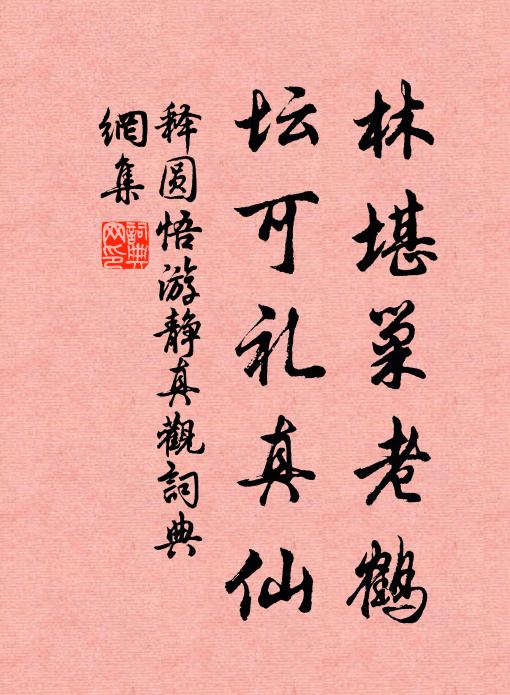 林堪巢老鹤
坛可礼真仙
释圆悟游静真觀詞典
網集
詞典网印